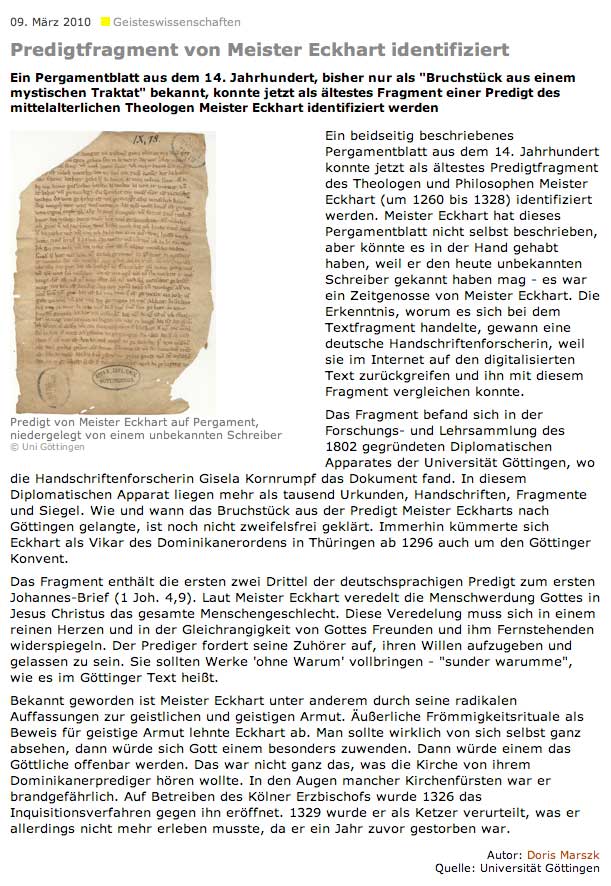 09. März 2010 Geisteswissenschaften
Predigtfragment von Meister Eckhart identifiziert
Ein Pergamentblatt aus dem 14. Jahrhundert, bisher nur als "Bruchstück aus einem
mystischen Traktat" bekannt, konnte jetzt als ältestes Fragment einer Predigt des
mittelalterlichen Theologen Meister Eckhart identifiziert werden
IX, 18.
Predigt von Meister Eckhart auf Pergament,
niedergelegt von einem unbekannten Schreiber
© Uni Göttingen
Ein beidseitig beschriebenes
Pergamentblatt aus dem 14. Jahrhundert
konnte jetzt als ältestes Predigtfragment
des Theologen und Philosophen Meister
Eckhart (um 1260 bis 1328) identifiziert
werden. Meister Eckhart hat dieses
Pergamentblatt nicht selbst beschrieben,
aber könnte es in der Hand gehabt
haben, weil er den heute unbekannten
Schreiber gekannt haben mag - es war
ein Zeitgenosse von Meister Eckhart. Die
Erkenntnis, worum es sich bei dem
Textfragment handelte, gewann eine
deutsche Handschriftenforscherin, weil
sie im Internet auf den digitalisierten
Text zurückgreifen und ihn mit diesem
Fragment vergleichen konnte.
Das Fragment befand sich in der
Forschungs- und Lehrsammlung des
1802 gegründeten Diplomatischen
Apparates der Universität Göttingen, wo
die Handschriftenforscherin Gisela Kornrumpf das Dokument fand. In diesem
Diplomatischen Apparat liegen mehr als tausend Urkunden, Handschriften, Fragmente
und Siegel. Wie und wann das Bruchstück aus der Predigt Meister Eckharts nach
Göttingen gelangte, ist noch nicht zweifelsfrei geklärt. Immerhin kümmerte sich
Eckhart als Vikar des Dominikanerordens in Thüringen ab 1296 auch um den Göttinger
Konvent.
Das Fragment enthält die ersten zwei Drittel der deutschsprachigen Predigt zum ersten
Johannes-Brief (1 Joh. 4,9). Laut Meister Eckhart veredelt die Menschwerdung Gottes in
Jesus Christus das gesamte Menschengeschlecht. Diese Veredelung muss sich in einem
reinen Herzen und in der Gleichrangigkeit von Gottes Freunden und ihm Fernstehenden
widerspiegeln. Der Prediger fordert seine Zuhörer auf, ihren Willen aufzugeben und
gelassen zu sein. Sie sollten Werke 'ohne Warum' vollbringen - "sunder warumme",
wie es im Göttinger Text heißt.
Bekannt geworden ist Meister Eckhart unter anderem durch seine radikalen
Auffassungen zur geistlichen und geistigen Armut. Äußerliche Frömmigkeitsrituale als
Beweis für geistige Armut lehnte Eckhart ab. Man sollte wirklich von sich selbst ganz
absehen, dann würde sich Gott einem besonders zuwenden. Dann würde einem das
Göttliche offenbar werden. Das war nicht ganz das, was die Kirche von ihrem
Dominikanerprediger hören wollte. In den Augen mancher Kirchenfürsten war er
brandgefährlich. Auf Betreiben des Kölner Erzbischofs wurde 1326 das
Inquisitionsverfahren gegen ihn eröffnet. 1329 wurde er als Ketzer verurteilt, was er
allerdings nicht mehr erleben musste, da er ein Jahr zuvor gestorben war.
Autor: Doris Marszk
Quelle: Universität Göttingen